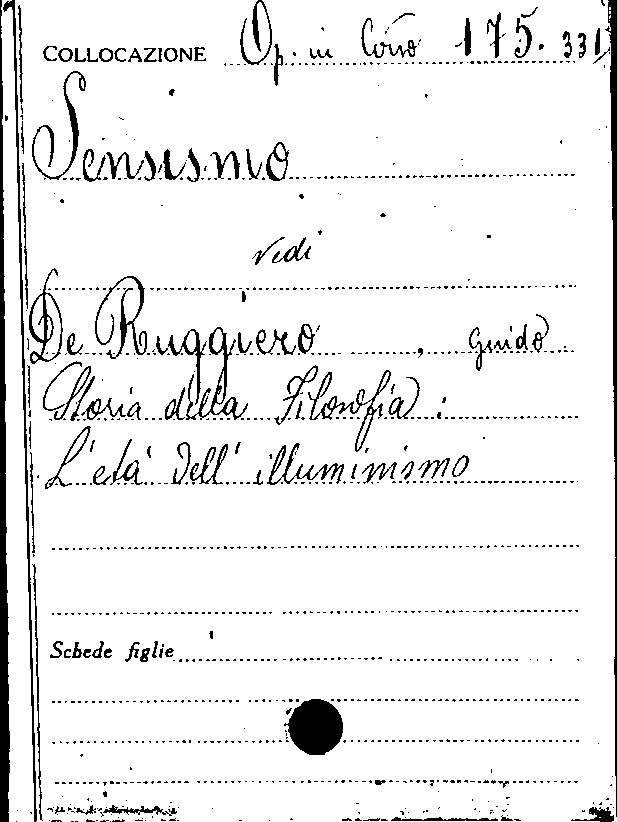 COLLOCAZIONE Op. in Corso 175. 331
Sensismo
vedi
De Ruggiero , Guido
Storia della Filosofia :
L'età dell' illuminismo
Schede figlie